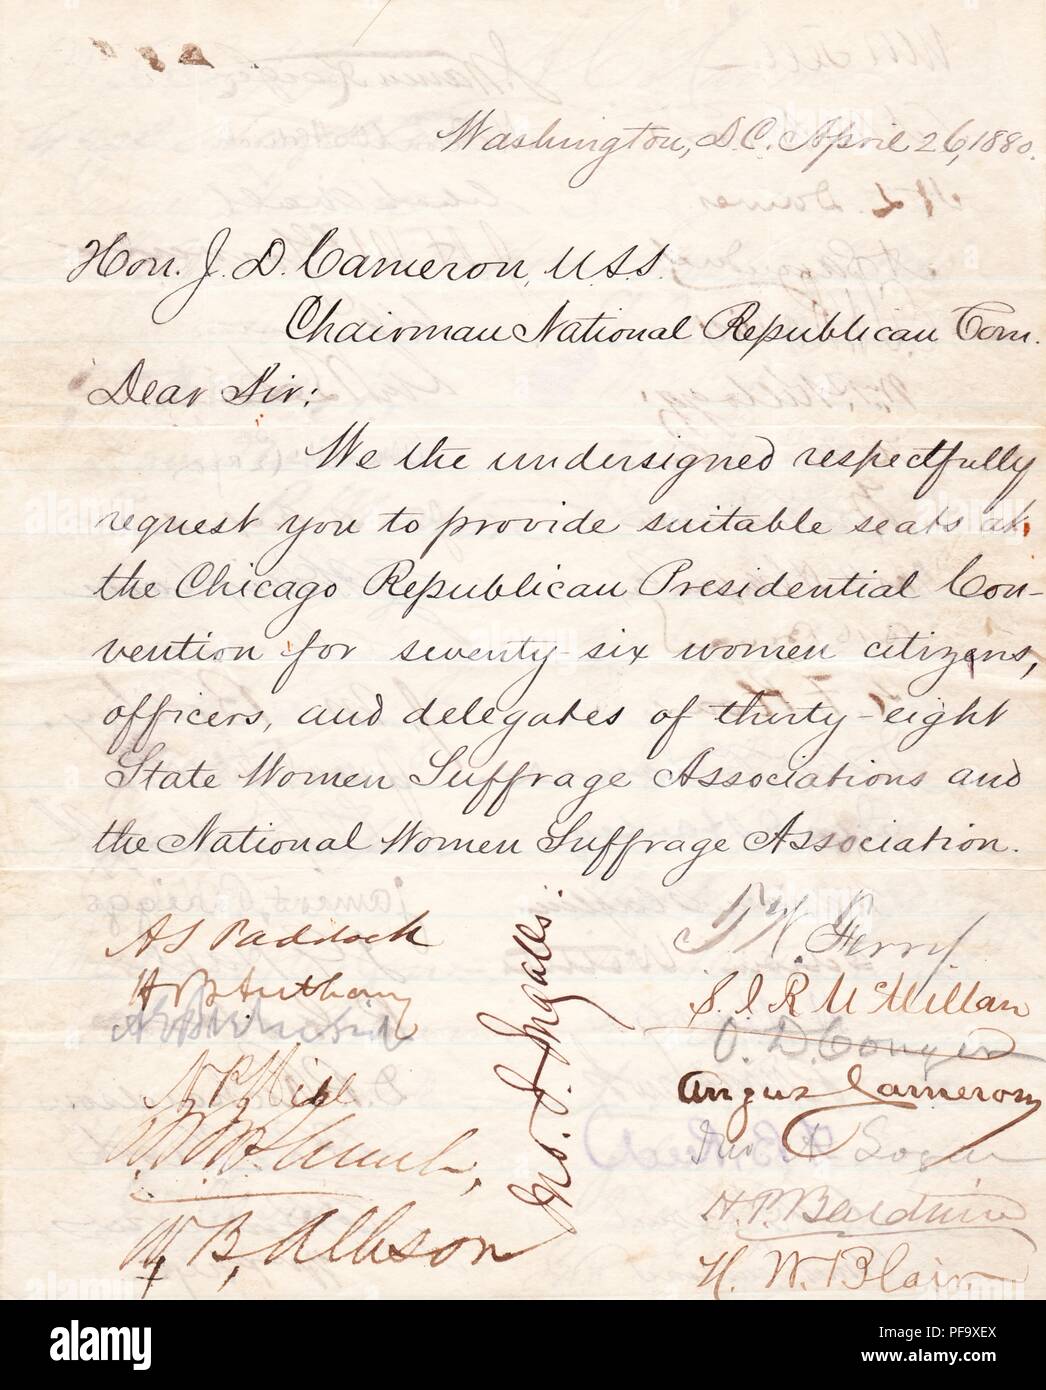 Washington, D.C. April 26, 1880.
Hon. J. D. Cameron, U.S.S.
Chairman National Republican Com.
Dear Sir:
We the undersigned respectfully
request you to provide suitable seats at
the Chicago Republican Presidential Con-
vention for seventy-six women citizens,
officers, and delegates of thirty-eight
State Women Suffrage Associations and
the National Women Suffrage Association.
A S Paddock
H B Anthony
N. P. Hill
W. B. Allison
Jno. J. Ingalls
T. W. Ferry
S. J. R. McMillan
O. D. Conger
Angus Cameron
Jno A Logan
H. P. Baldwin
H. W. Blair
alamy
PF9XEX
www.alamy.com